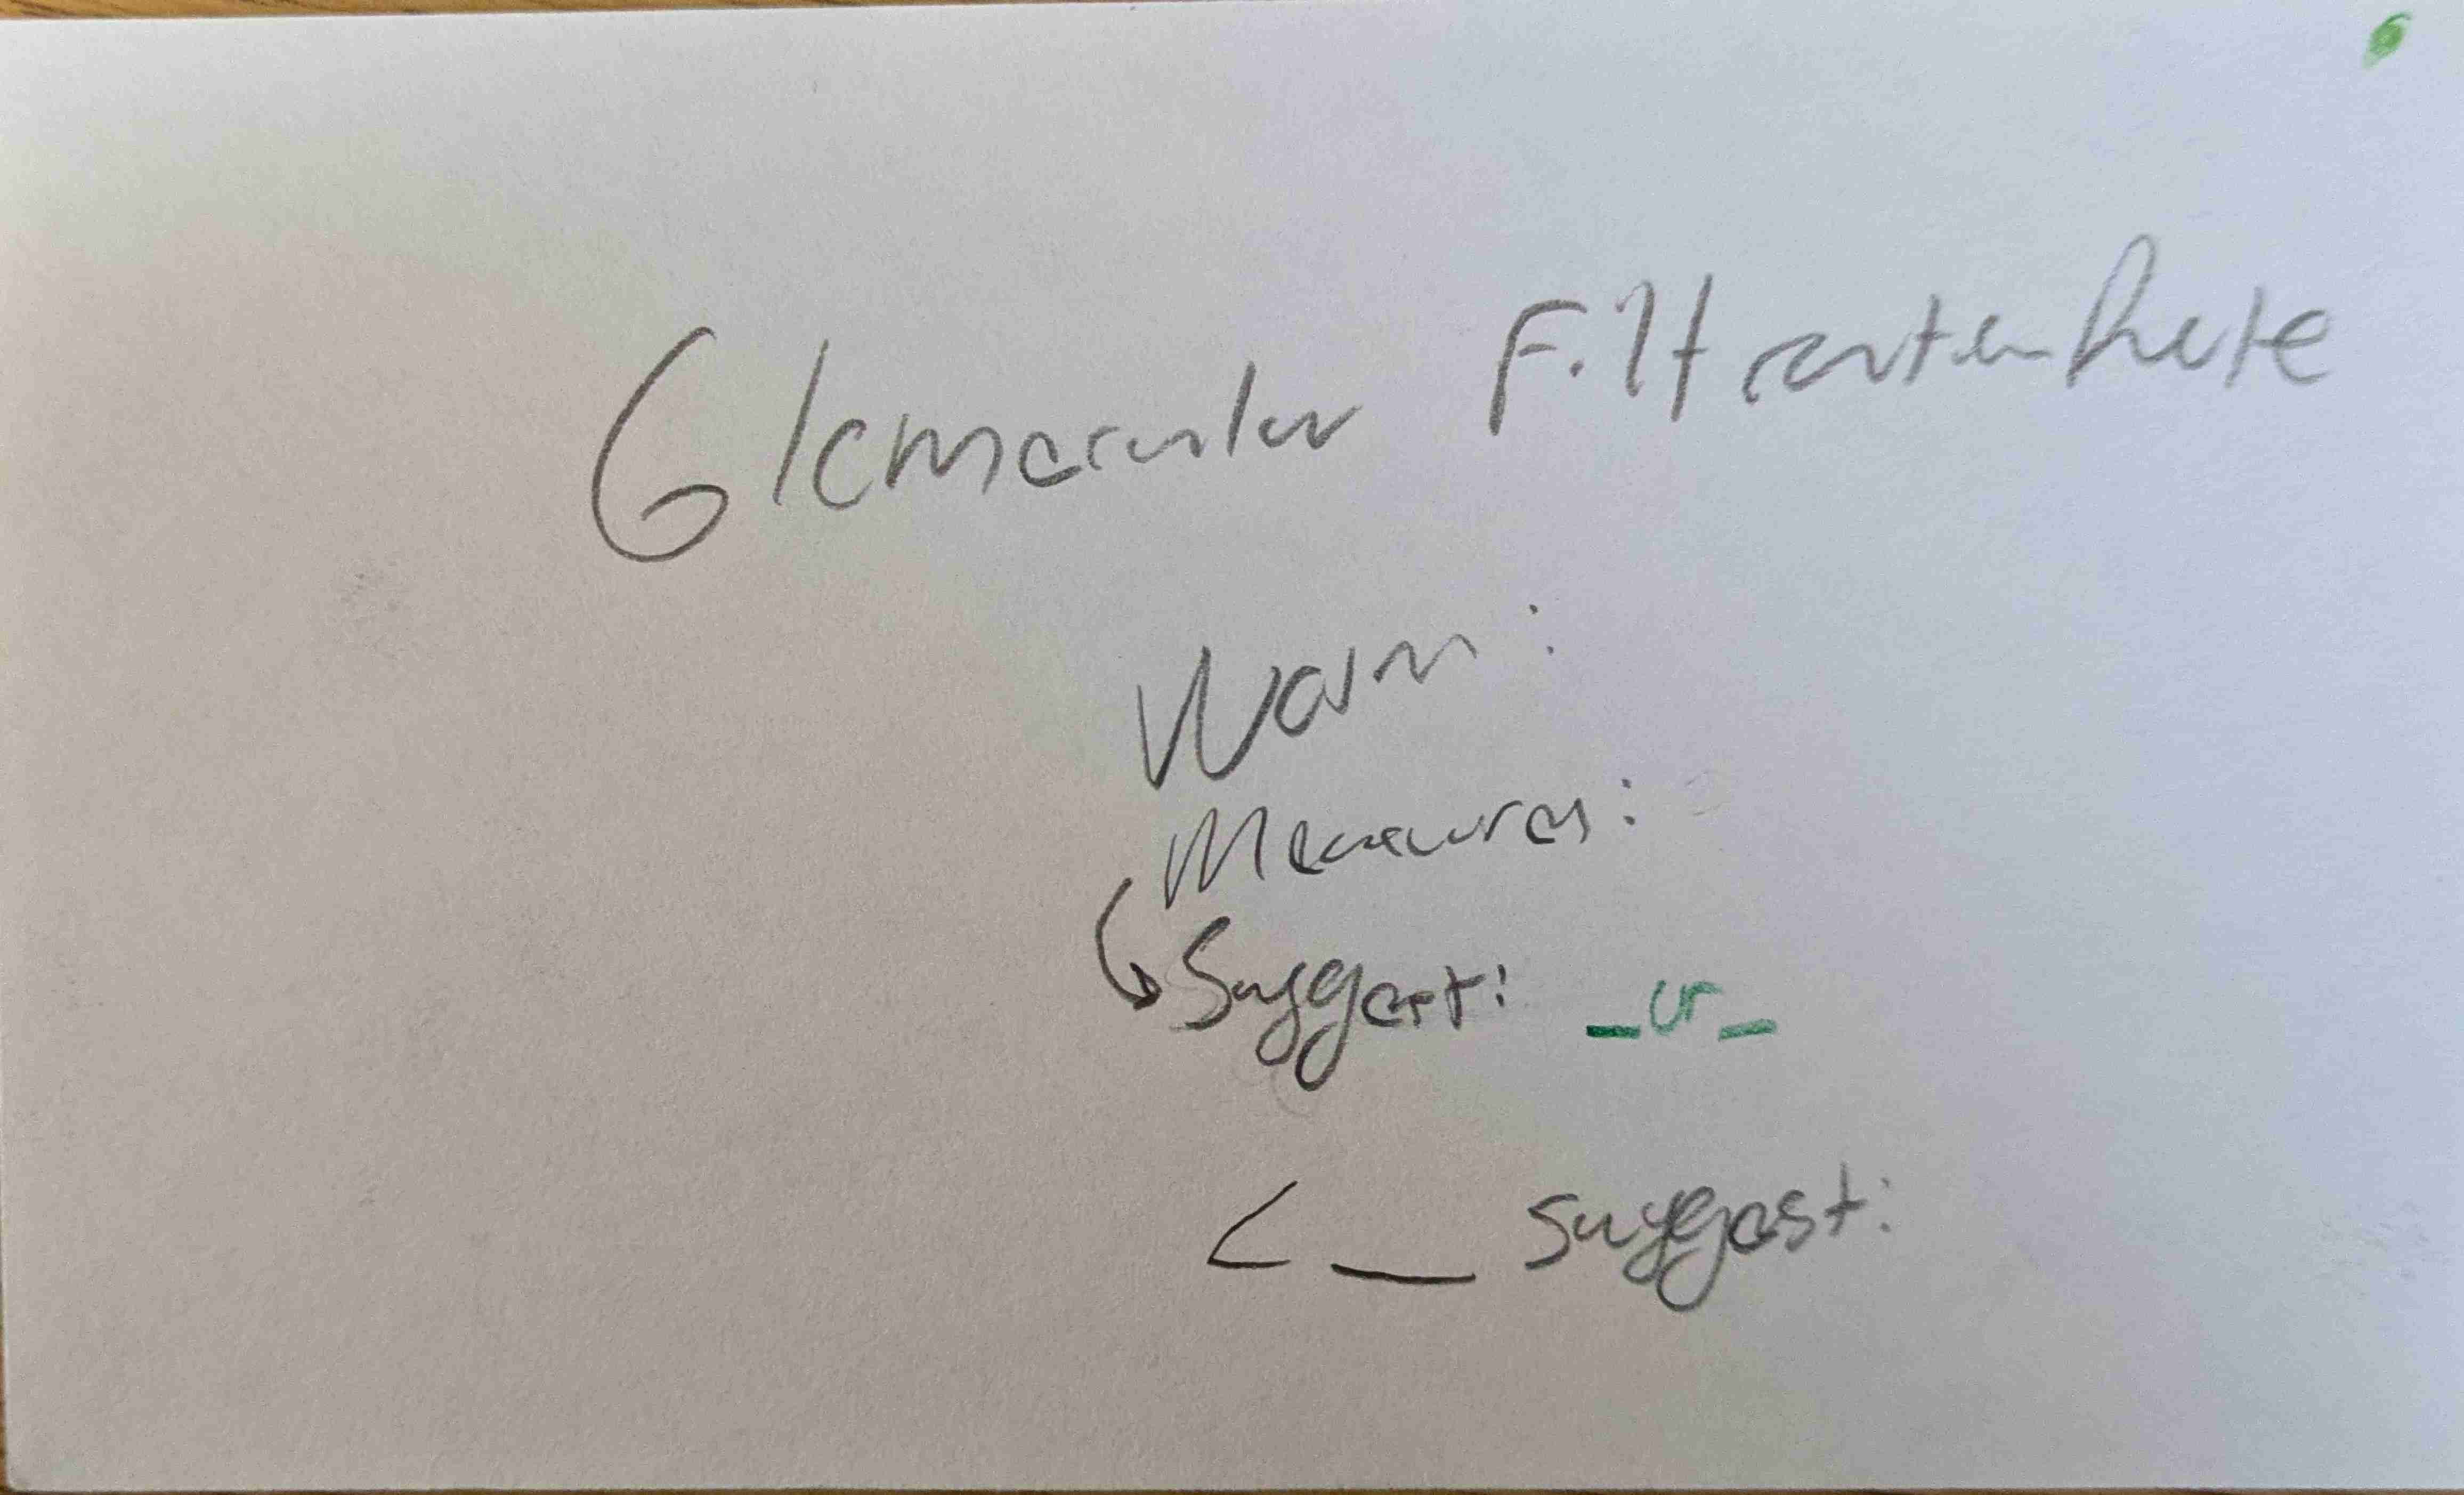 Glomerular Filtration Rate
Norm:
Measures:
↳ Suggest: _or_
< __ suggest: